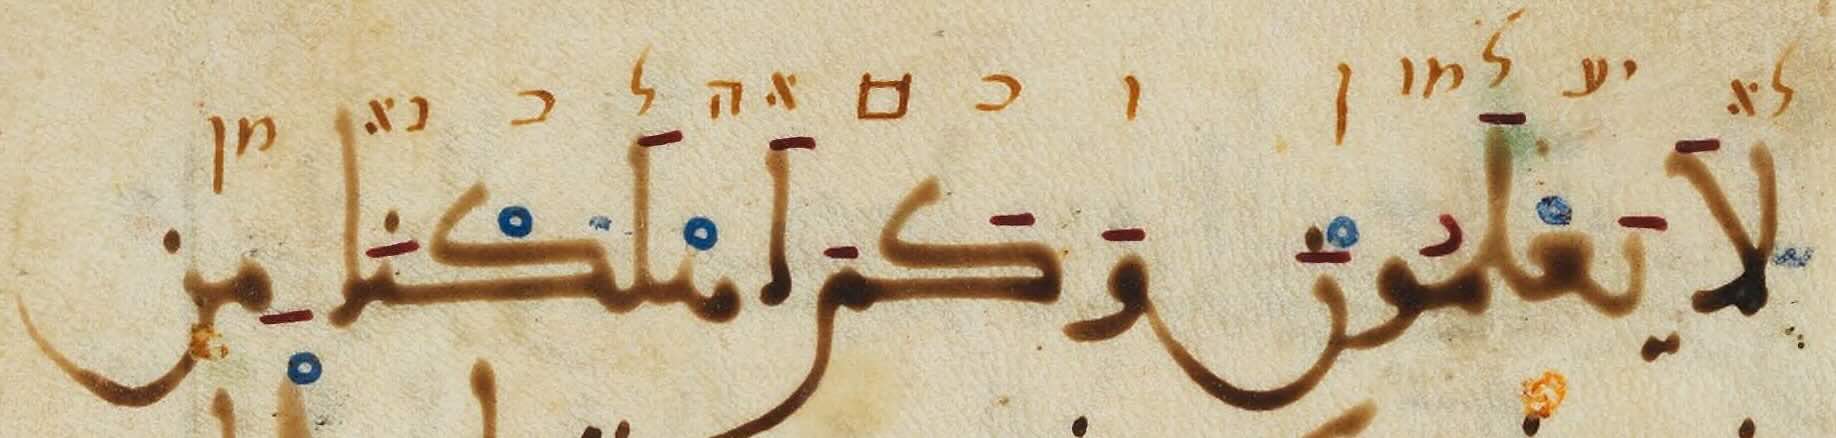 לא יעלמון וכם אהלכנא מן
لَا يَعْلَمُونَ وَكَمَ اَهْلَكْنَا مِن